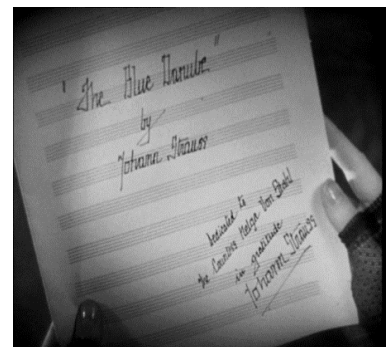 "The Blue Danube"
by
Johann Strauss
Dedicated to
the Countess Helga Von Stahl
in gratitude
Johann Strauss